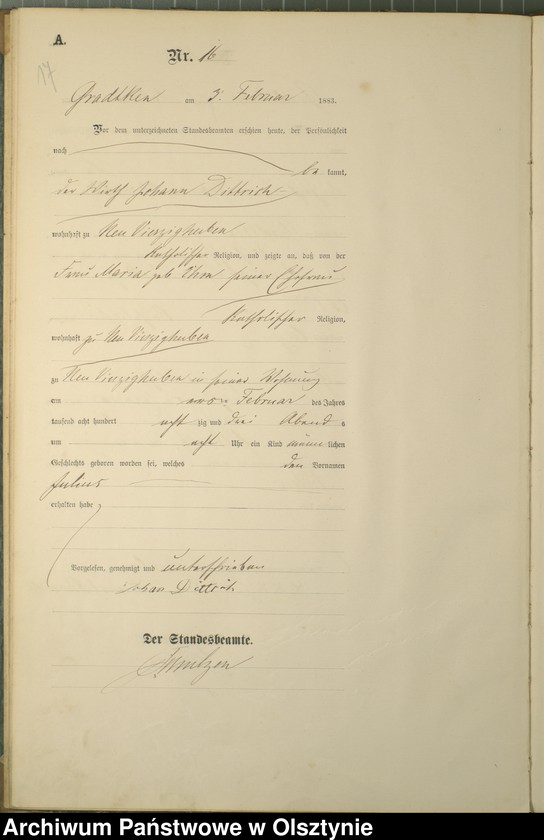 A.
Nr. 16
17
Gradtken am 3. Februar 1883.
Vor dem unterzeichneten Standesbeamten erschien heute, der Persönlichkeit
nach
be kannt,
der Wirth Johann Dittrich
wohnhaft zu Neu Vierzighuben
katholischer Religion, und zeigte an, daß von der
Frau Maria geb. seiner Ehefrau
katholischer Religion,
wohnhaft zu Neu Vierzighuben
zu Neu Vierzighuben in seiner Wohnung
am Februar des Jahres
tausend acht hundert acht zig und drei Abend s
um acht Uhr ein Kind männ lichen
Geschlechts geboren worden sei, welches den Vornamen
Julius
erhalten habe
Vorgelesen, genehmigt und unterschrieben
Johan Dittrich
Der Standesbeamte.
Archiwum Państwowe w Olsztynie